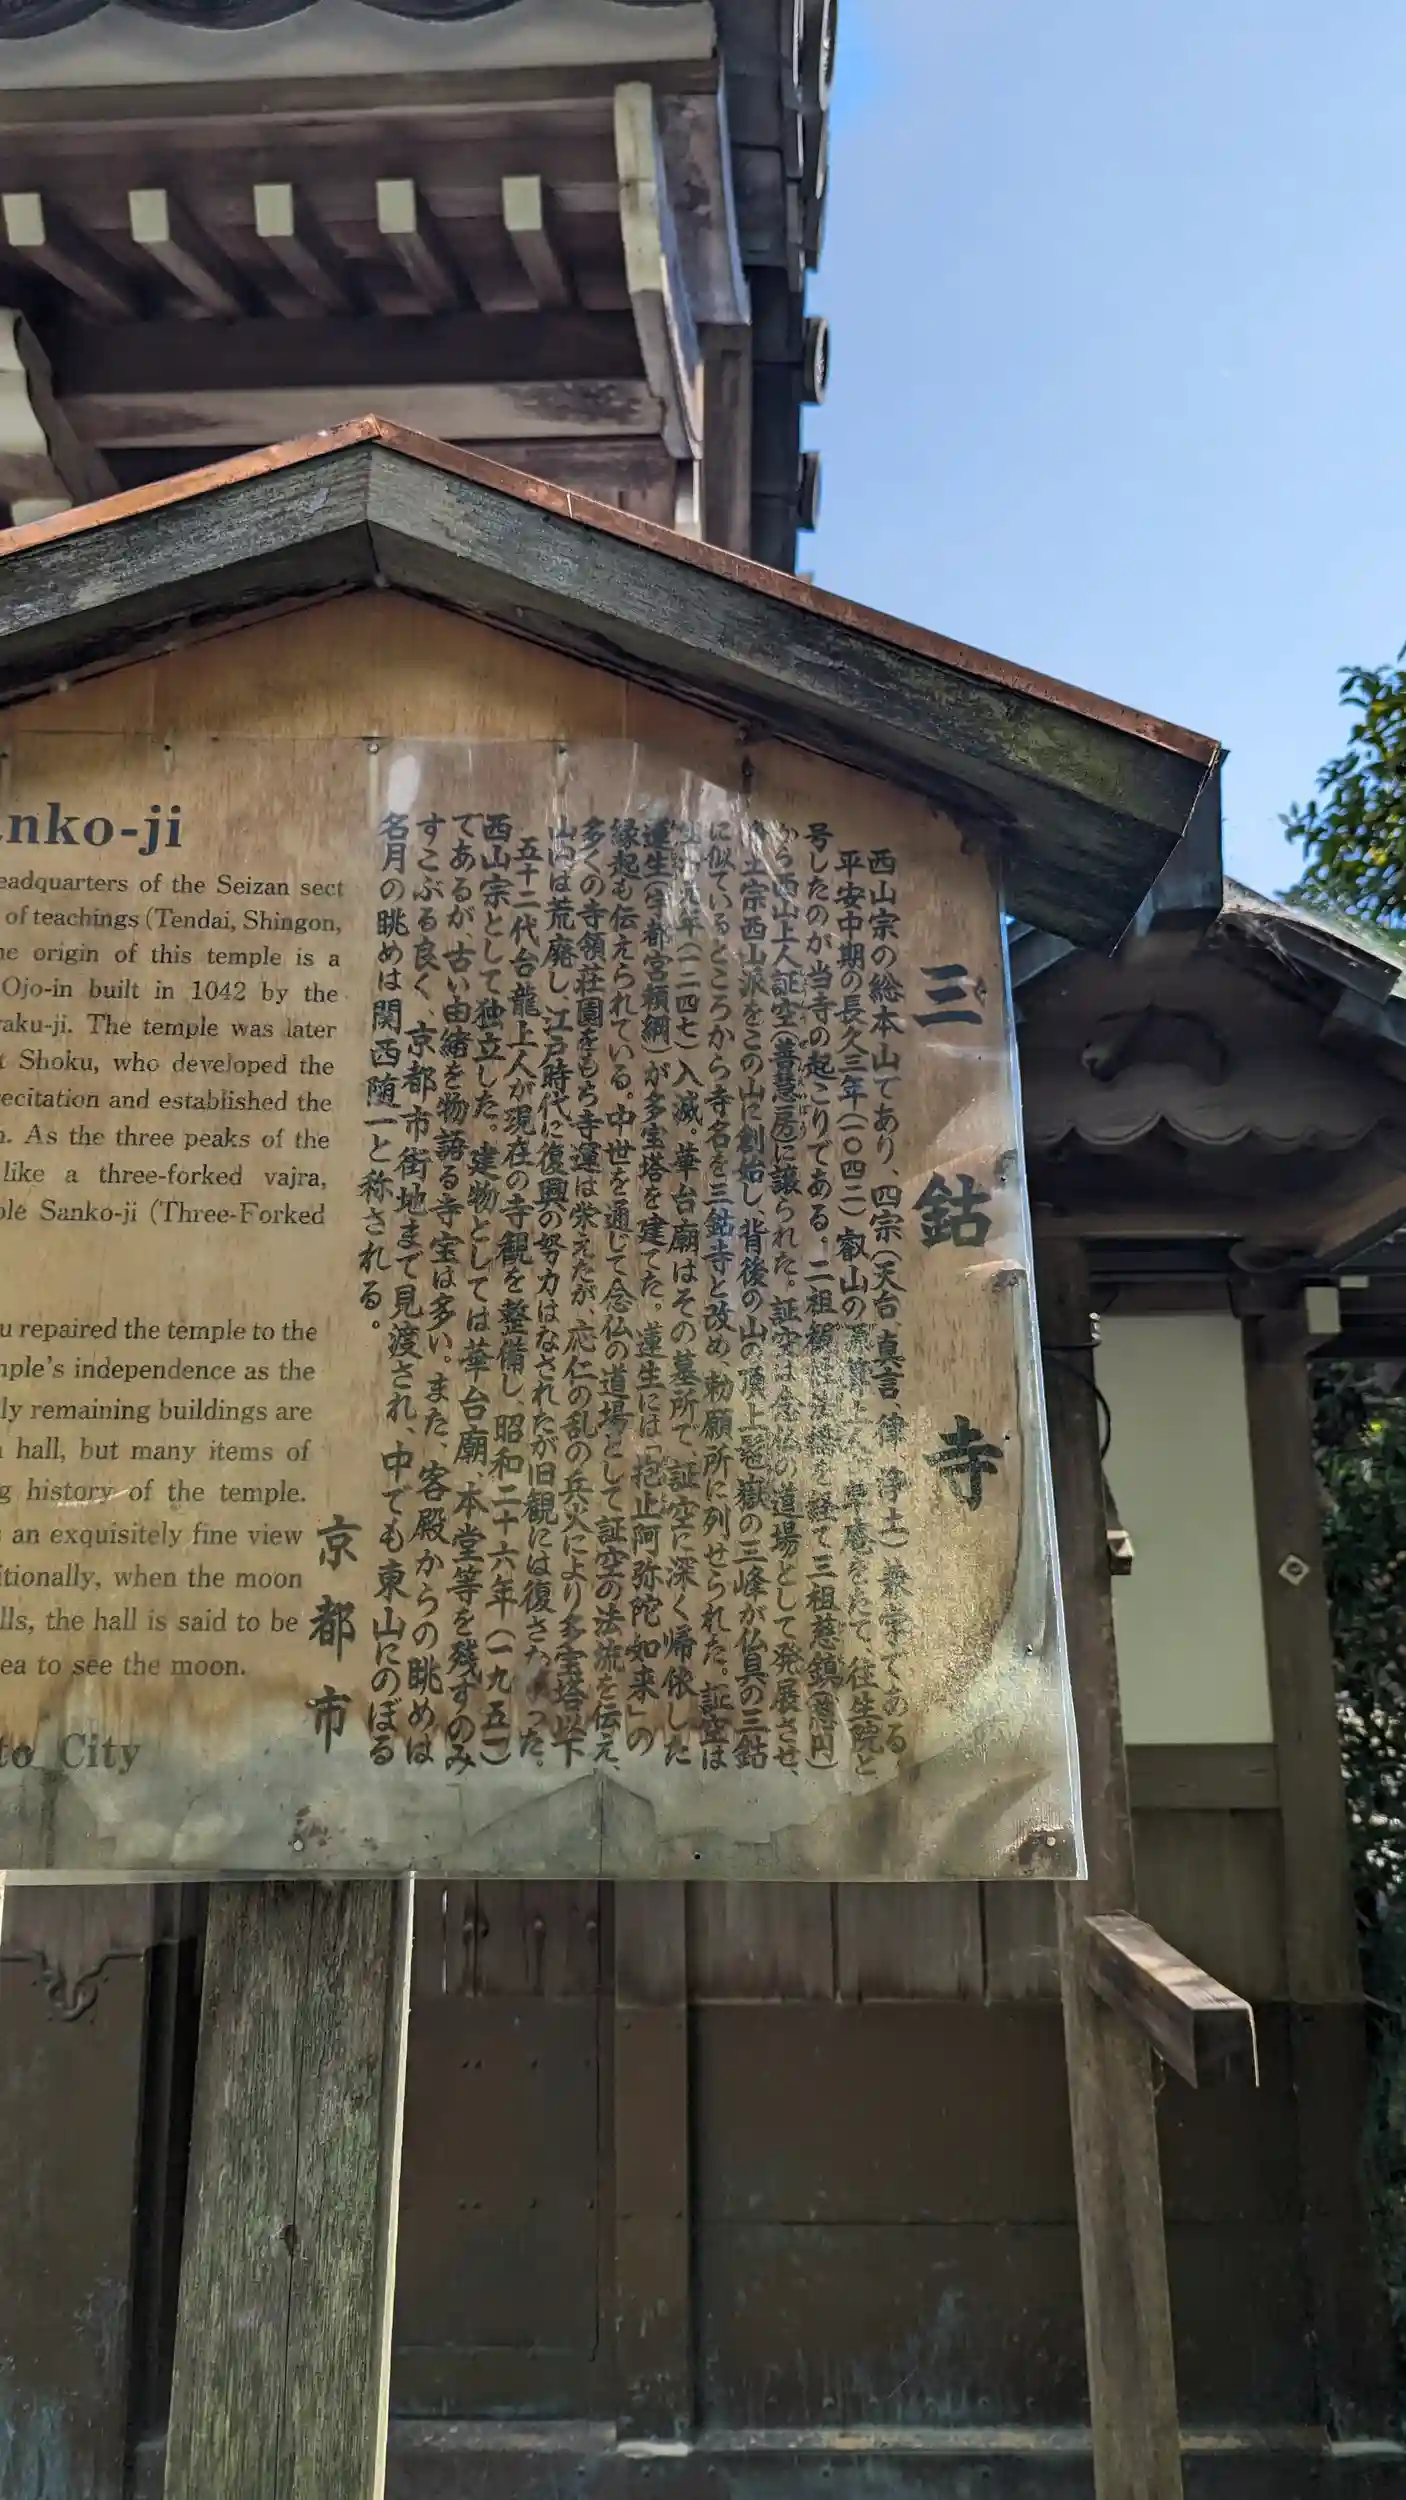 三鈷寺
西山宗の総本山であり、四宗(天台、真言、律、浄土)兼学である。
平安中期の長久三年(一〇四二)叡山の源算上人が草庵をたて、往生院と
号したのが当寺の起こりである。二祖観性法橋を経て三祖慈鎮(慈円)
から西山上人証空(善慧房)に譲られた。証空は念仏の道場として発展させ、
土宗西山派をこの山に創始し、背後の山の頂上 嶽の三峰が仏具の三鈷
に似ているところから寺名を三鈷寺と改め、勅願所に列せられた。証空は
元年(一二四七)入滅。華台廟はその墓所で、証空に深く帰依した
蓮生(宇都宮頼綱)が多宝塔を建てた。蓮生には「抱止阿弥陀如来」の
縁起も伝えられている。中世を通じて念仏の道場として証空の法流を伝え、
多くの寺領荘園をもち寺運は栄えたが、応仁の乱の兵火により多宝塔以下
山内は荒廃し、江戸時代に復興の努力はなされたが旧観には復さなかった。
五十二代台龍上人が現在の寺観を整備し、昭和二十六年(一九五一)
西山宗として独立した。建物としては華台廟、本堂等を残すのみ
であるが、古い由緒を物語る寺宝は多い。また、客殿からの眺めは
すこぶる良く、京都市街地まで見渡され、中でも東山にのぼる
名月の眺めは関西随一と称される。
京都市
nko-ji
eadquarters of the Seizan sect
of teachings (Tendai, Shingon,
e origin of this temple is a
Ojo-in built in 1042 by the
raku-ji. The temple was later
t Shoku, who developed the
recitation and established the
n. As the three peaks of the
like a three-forked vajra,
ple Sanko-ji (Three-Forked
u repaired the temple to the
mple's independence as the
ly remaining buildings are
hall, but many items of
g history of the temple.
an exquisitely fine view
itionally, when the moon
lls, the hall is said to be
ea to see the moon.
to City